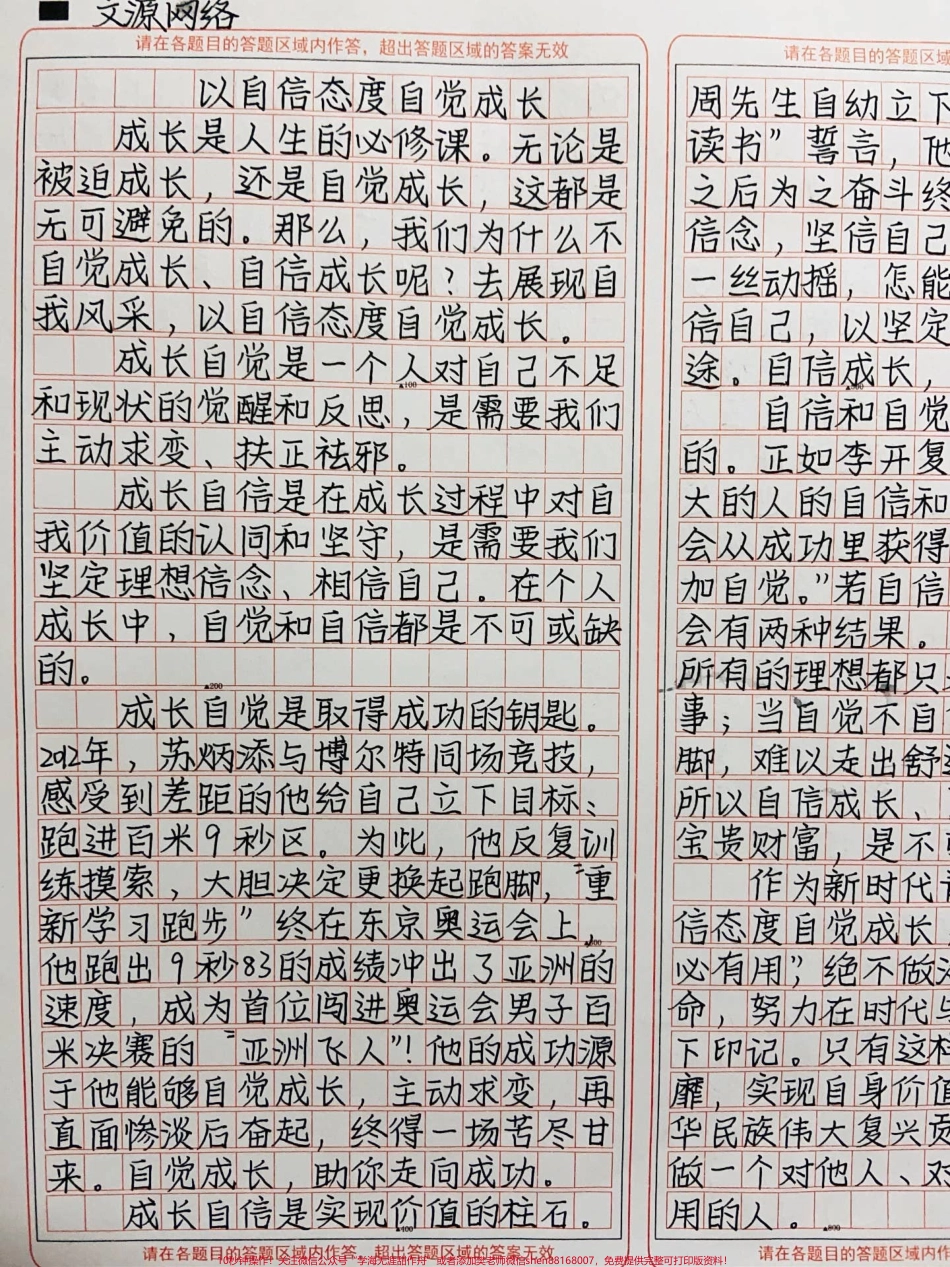 文源网络
请在各题目的答题区域内作答，超出答题区域的答案无效
以自信态度自觉成长
成长是人生的必修课。无论是
被迫成长，还是自觉成长，这都是
无可避免的。那么，我们为什么不
自觉成长、自信成长呢？去展现自
我风采，以自信态度自觉成长。
成长自觉是一个人对自己不足
▲100
和现状的觉醒和反思，是需要我们
主动求变、扶正祛邪。
成长自信是在成长过程中对自
我价值的认同和坚守，是需要我们
坚定理想信念、相信自己。在个人
成长中，自觉和自信都是不可或缺
的。
▲200
成长自觉是取得成功的钥匙。
2012年，苏炳添与博尔特同场竞技，
感受到差距的他给自己立下目标：
跑进百米9秒区。为此，他反复训
练摸索，大胆决定更换起跑脚，“重
新学习跑步”终在东京奥运会上，
▲300
他跑出9秒83的成绩冲出了亚洲的
速度，成为首位闯进奥运会男子百
米决赛的“亚洲飞人”！他的成功源
于他能够自觉成长，主动求变，再
直面惨淡后奋起，终得一场苦尽甘
来。自觉成长，助你走向成功。
成长自信是实现价值的柱石。
▲400
请在各题目的答题区域内作答，超出答题区域的答案无效
请在各题目的答题区域
周先生自幼立下
读书”誓言，他
之后为之奋斗终
信念，坚信自己
一丝动摇，怎能
信自己，以坚定
途。自信成长，
自信和自觉
的。正如李开复
大的人的自信和
会从成功里获得
加自觉。”若自信
会有两种结果。
所有的理想都只
事；当自觉不自
脚，难以走出舒
所以自信成长、
宝贵财富，是不
作为新时代
信态度自觉成长
必有用”，绝不做
命，努力在时代
下印记。只有这
靡，实现自身价值
华民族伟大复兴贡
做一个对他人、对
用的人。
▲800
请在各题目的答题区域内作
10秒钟操作！关注微信公众号“学海无涯甜作舟”或者添加吴老师微信shen88168007，免费提供完整可打印版资料！